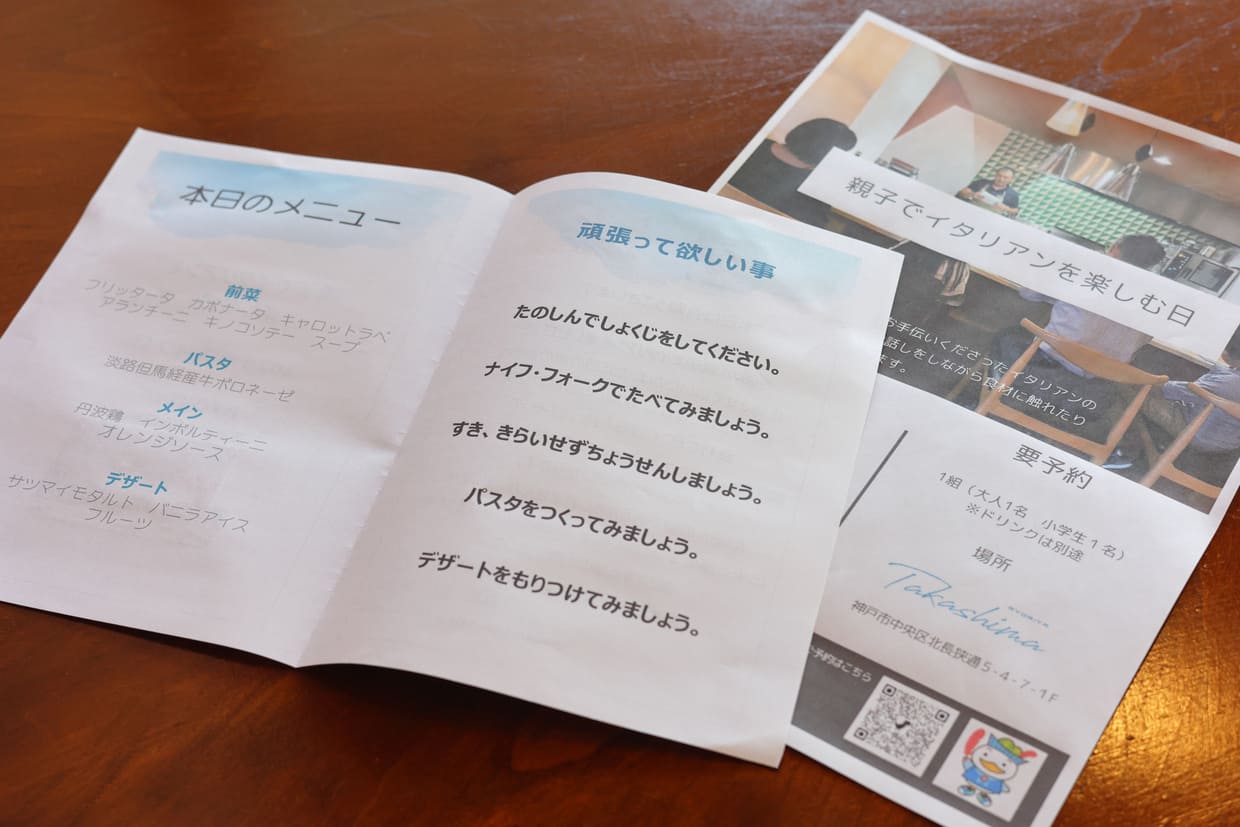 本日のメニュー
前菜
フリッタータ　カポナータ　キャロットラペ
アランチーニ　キノコソテー　スープ
パスタ
淡路但馬経産牛ボロネーゼ
メイン
丹波鶏　インボルティーニ
オレンジソース
デザート
サツマイモタルト　バニラアイス
フルーツ
頑張って欲しい事
たのしんでしょくじをしてください。
ナイフ・フォークでたべてみましょう。
すき、きらいせずちょうせんしましょう。
パスタをつくってみましょう。
デザートをもりつけてみましょう。
親子でイタリアンを楽しむ日
お手伝いくださったイタリアンの
話しをしながら食材に触れたり
ます。
要予約
1組（大人1名　小学生１名）
※ドリンクは別途
場所
Takashima
神戸市中央区北長狭通5-4-7-1F
予約はこちら